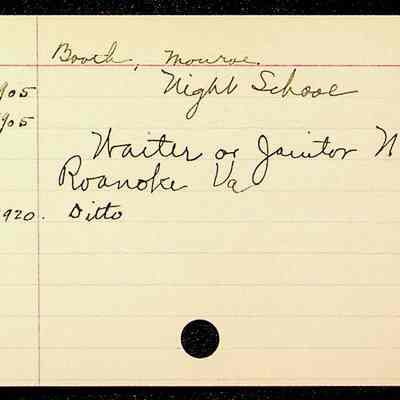 Booth, Monroe
905 Night School
905
Waiter or Janitor N
Roanoke Va
1920. Ditto